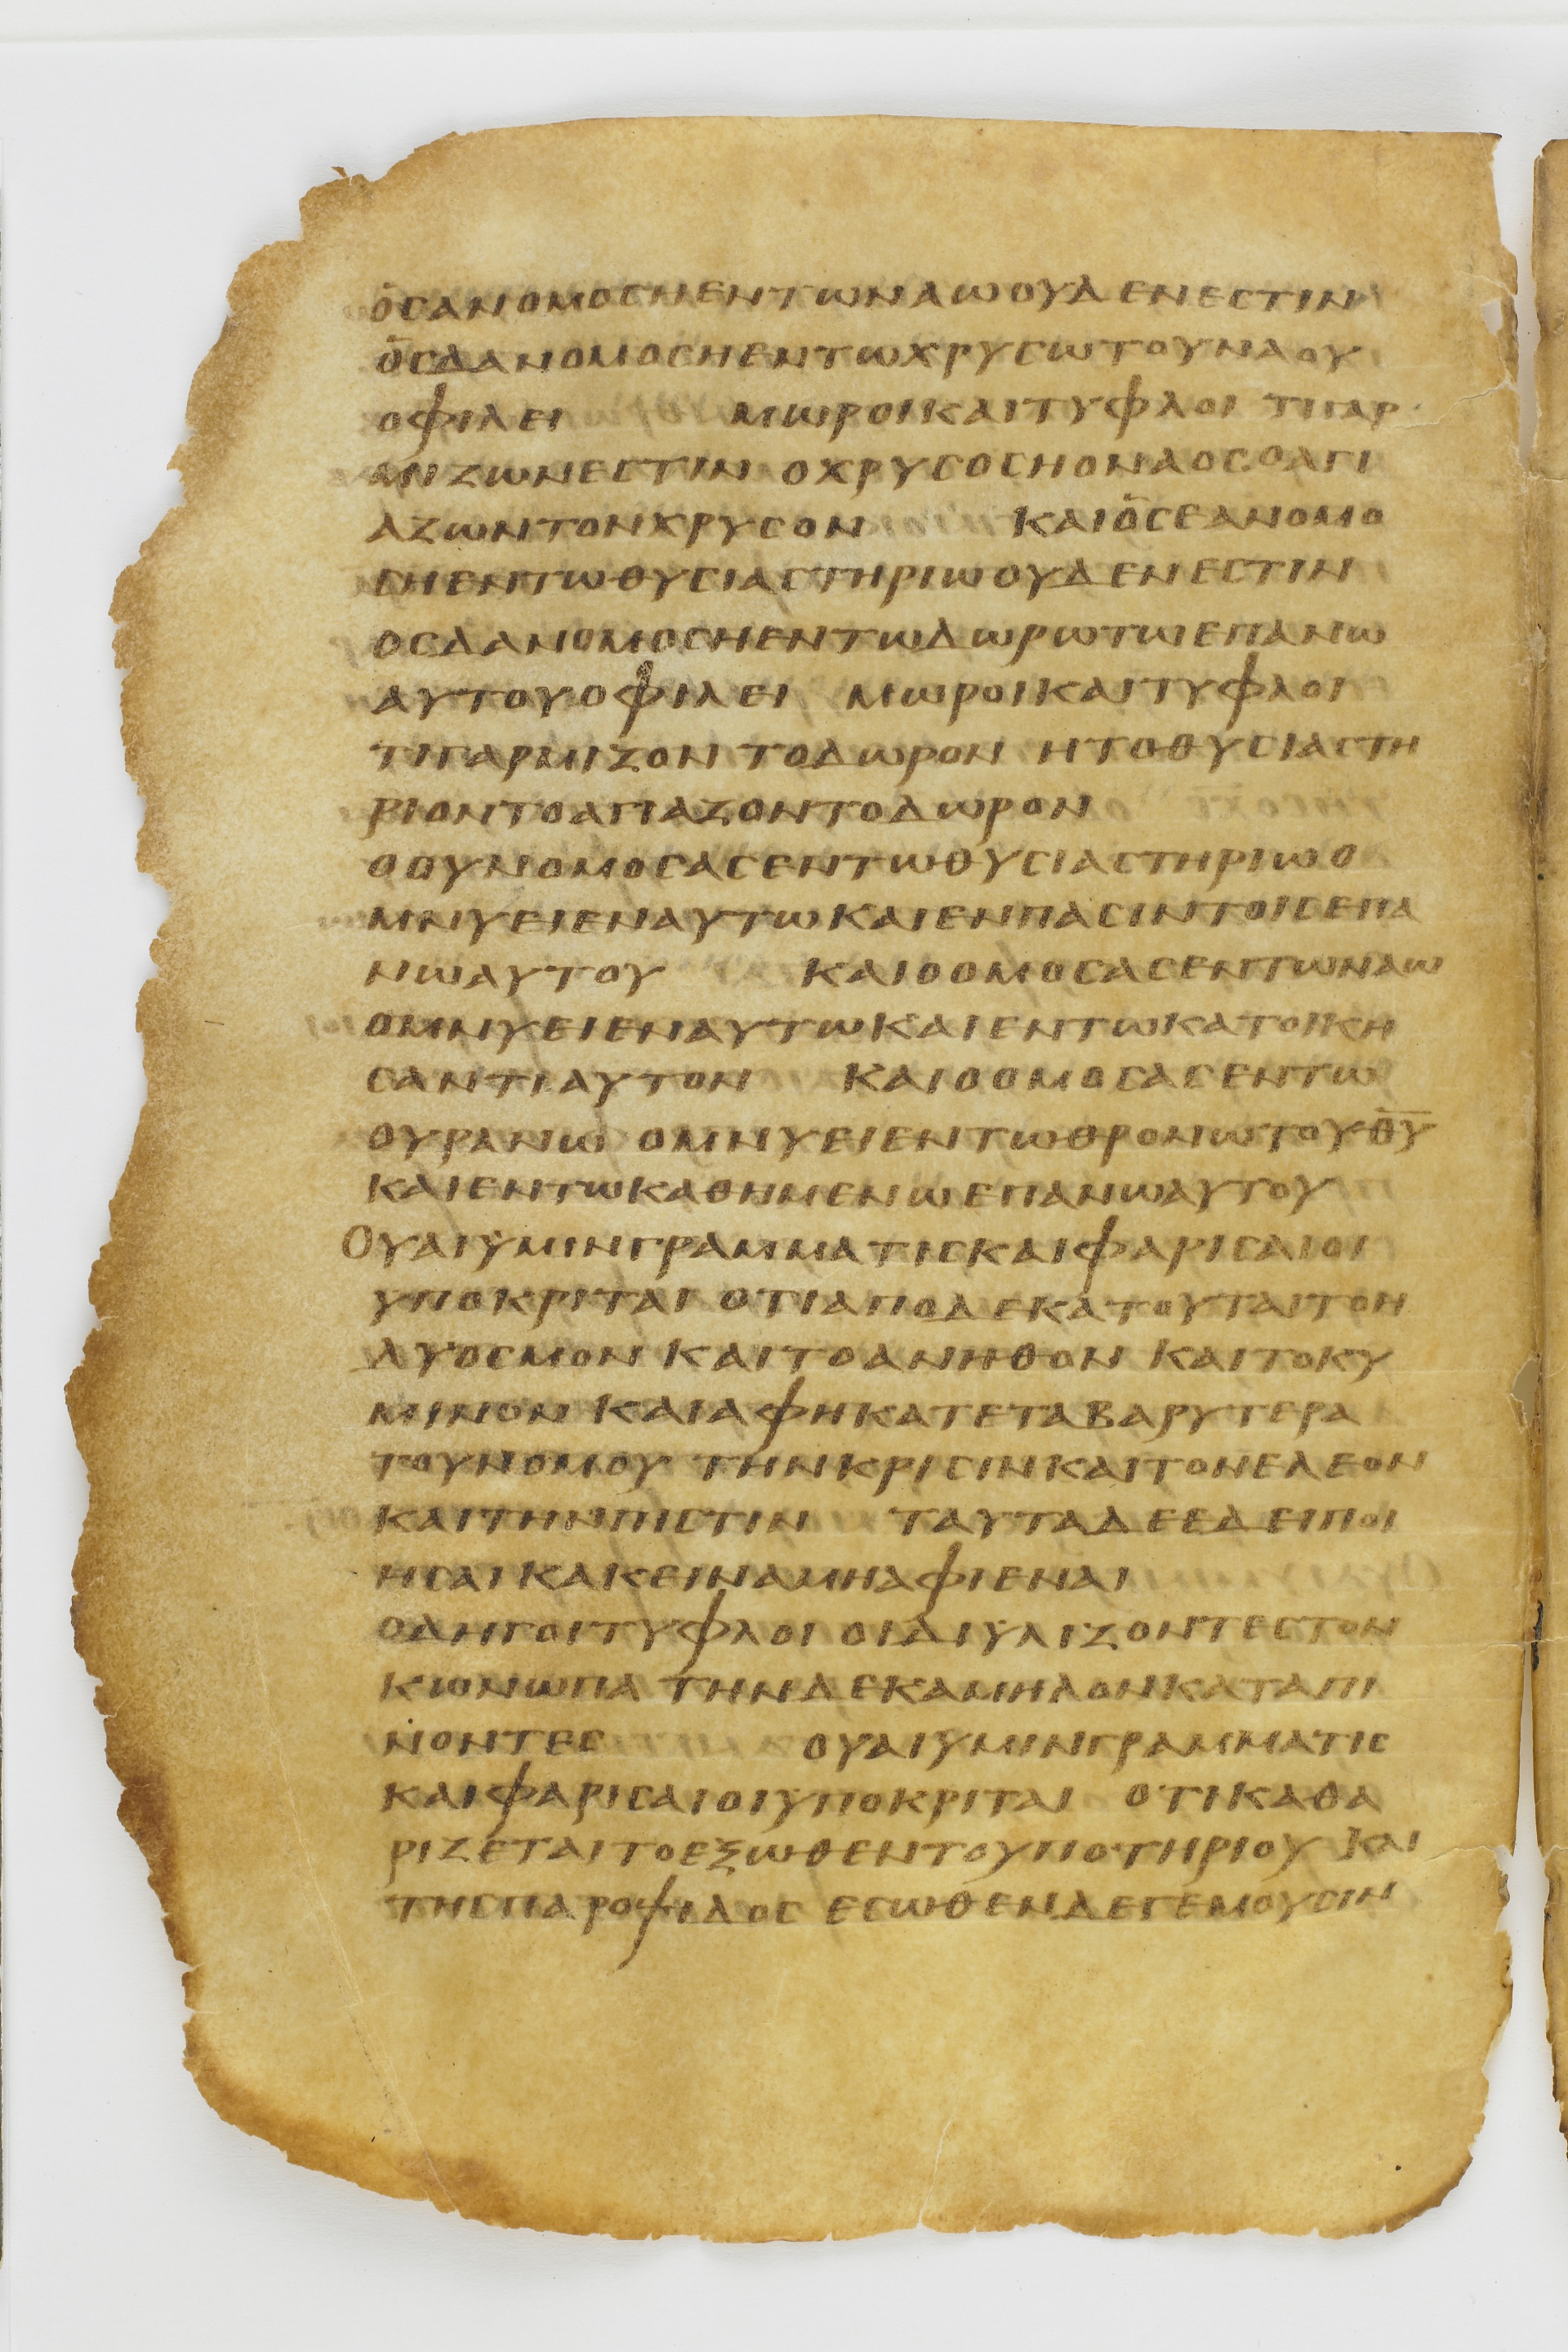 ὁσανομοσηεντωναωουδενεστιν
ὁσδανομοσηεντωχρυσωτουναου
οφιλει μωροικαιτυφλοι τιγαρ
μιζωνεστιν οχρυσοσηοναοσοαγι
αζωντονχρυσον καιὁσεανομο
σηεντωθυσιαστηριωουδενεστιν
οσδανομοσηεντωδωρωτωεπανω
αυτουοφιλει μωροικαιτυφλοι
τιγαρμιζον τοδωρον ητοθυσιαστη
ριοντοαγιαζοντοδωρον
οουνομοσασεντωθυσιαστηριωο
μνυειεναυτωκαιενπασιντοισεπα
νωαυτου καιοομοσασεντωναω
ομνυειεναυτωκαιεντωκατοικη
σαντιαυτον καιοομοσασεντω
ουρανω ομνυειεντωθρονωτουθ̅υ̅
καιεντωκαθημενωεπανωαυτου
Ουαιϋμινγραμματισκαιφαρισαιοι
υποκριται οτιαποδεκατουταιτον
δυοσμον καιτοανηθον καιτοκυ
μινον καιαφηκατεταβαρυτερα
τουνομου τηνκρισινκαιτονελεον
καιτηνπιστιν ταυταδεεδειποι
ησαικακειναμηαφιεναι
οδηγοιτυφλοι οιδιϋλιζοντεστον
κωνωπα τηνδεκαμηλονκαταπι
νοντεσ ουαιϋμινγραμματισ
καιφαρισαιοιυποκριται οτικαθα
ριζεταιτοεξωθεντουποτηριου και
τησπαροψιδοσ εσωθενδεγεμουσιν